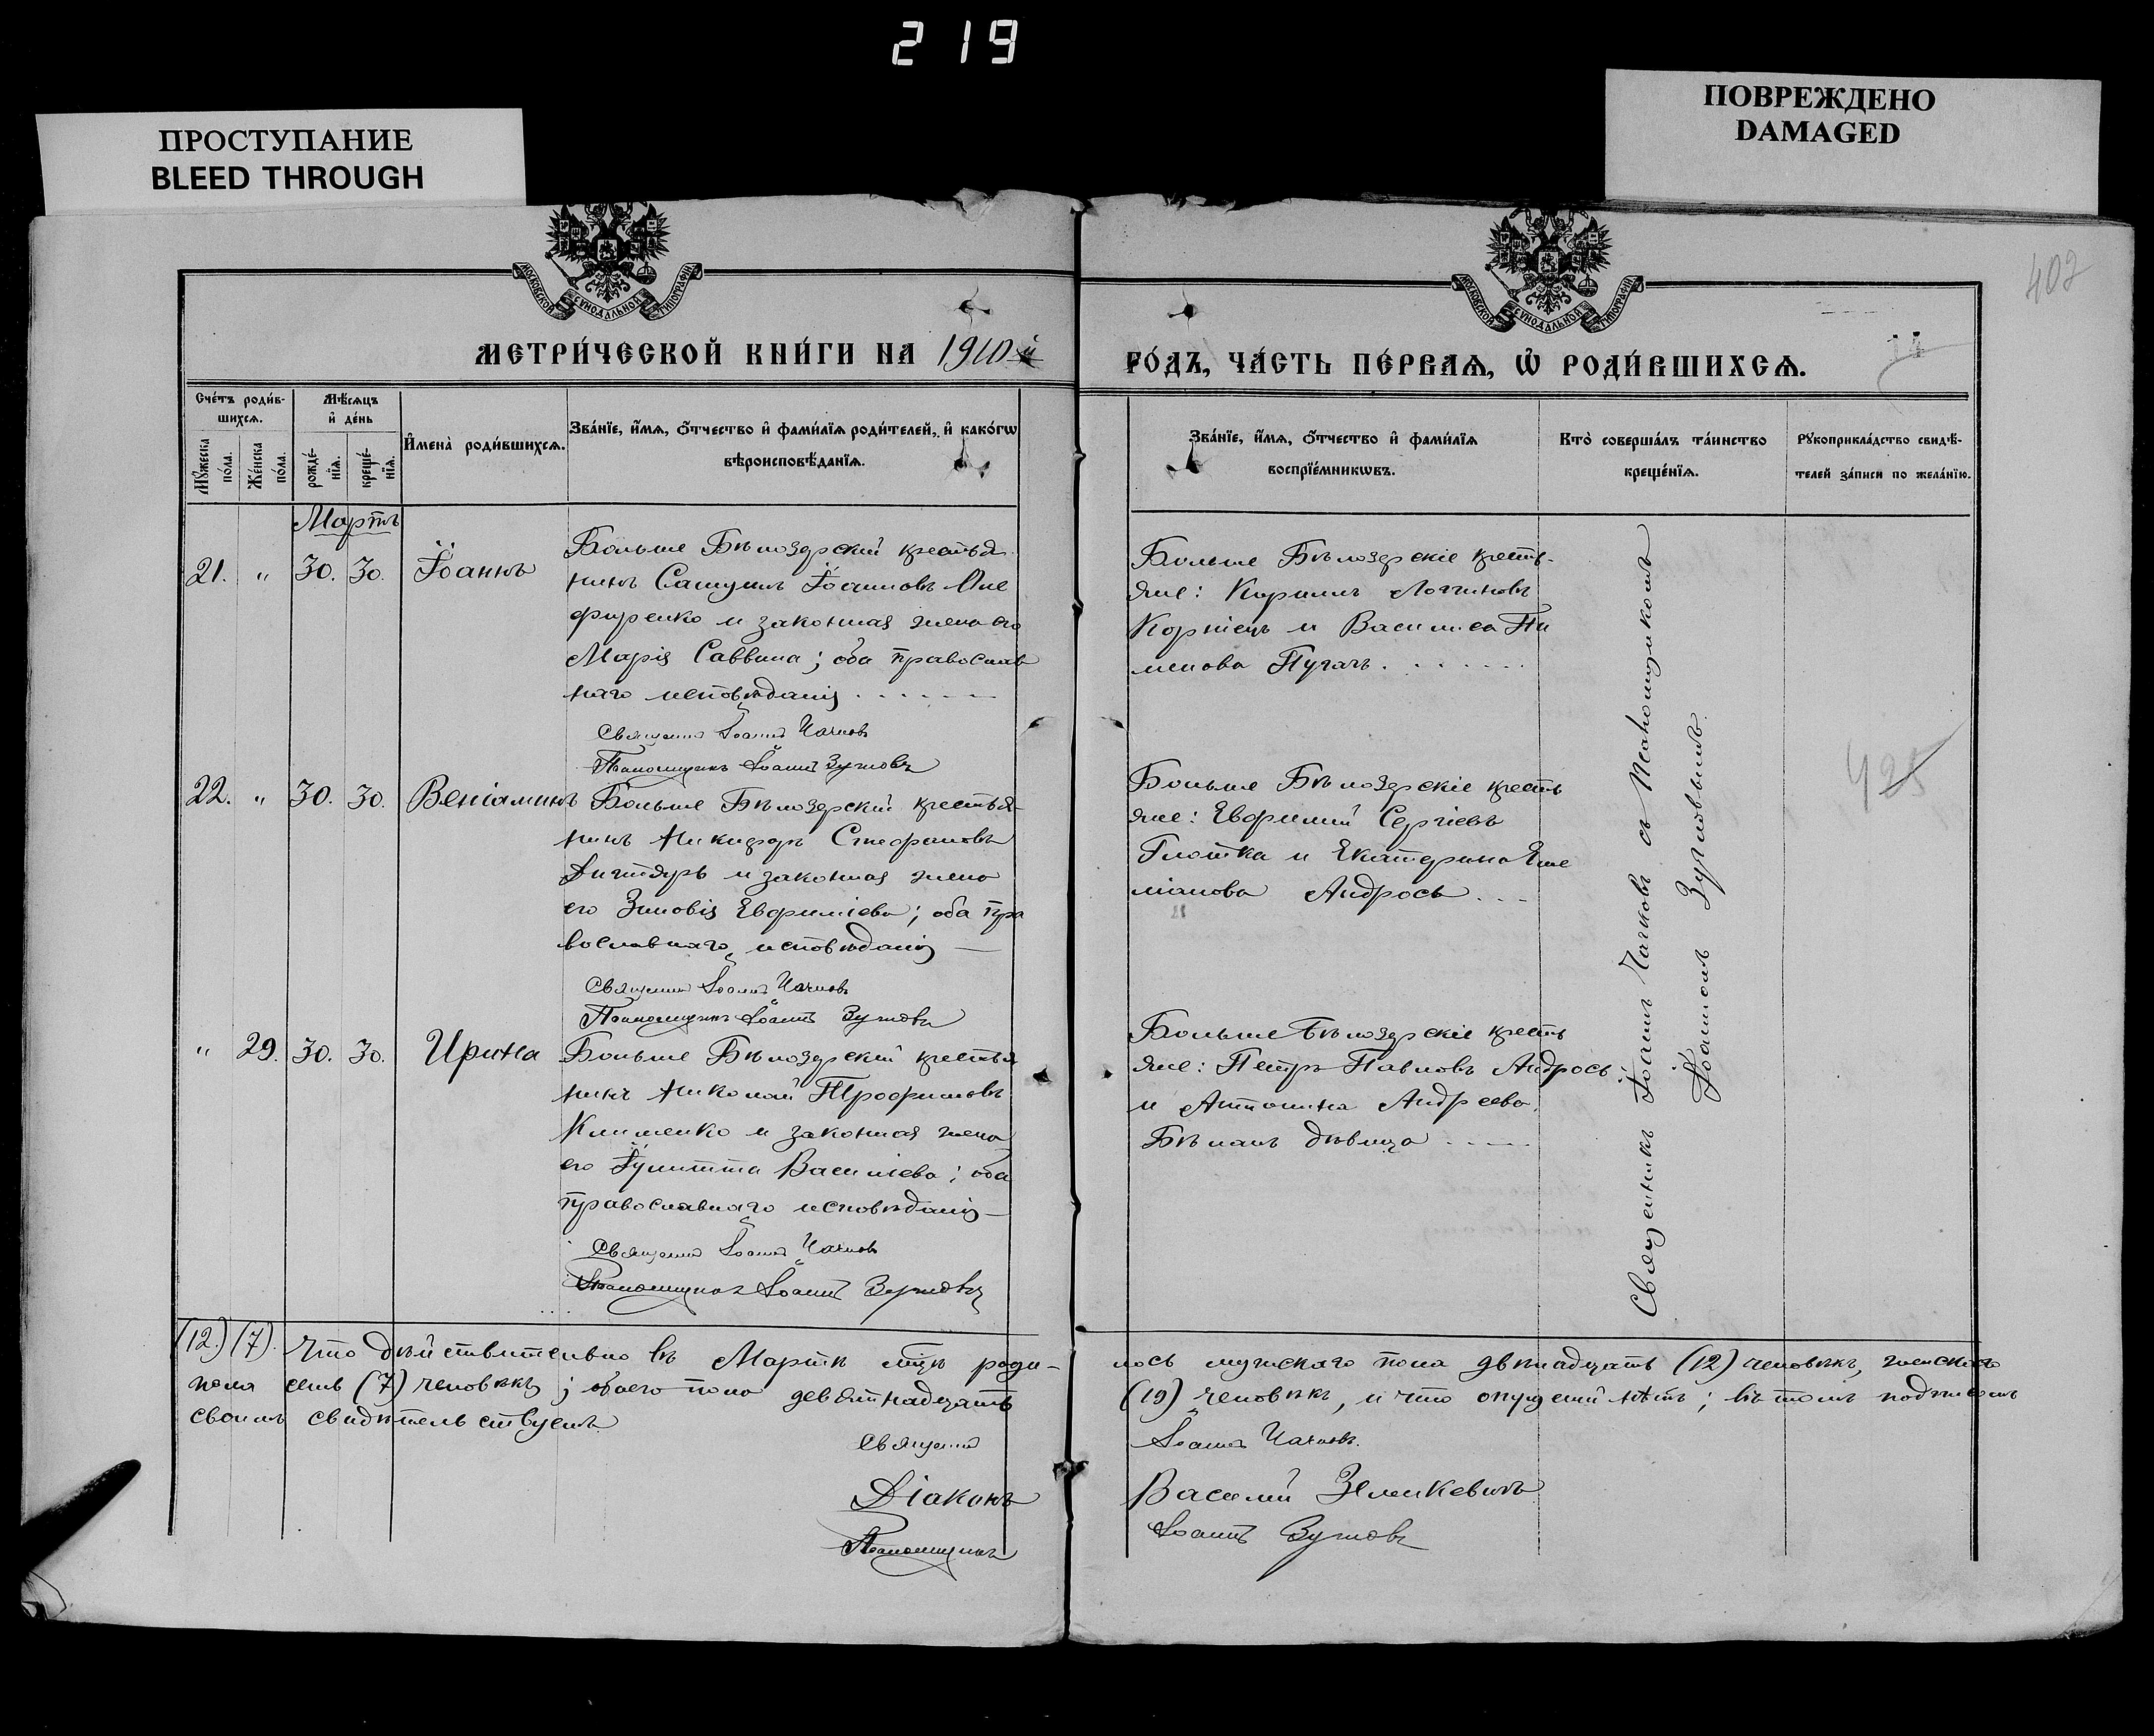 219
ПРОСТУПАНИЕ
BLEED THROUGH
ПОВРЕЖДЕНО
DAMAGED
МОСКОВСКОЙ СѴНОДАЛЬНОЙ ТИПОГРАФІИ
МОСКОВСКОЙ СѴНОДАЛЬНОЙ ТИПОГРАФІИ
402
МЕТРИ́ЧЕСКОЙ КНИ́ГИ НА 1910 й
РО́ДЪ, ЧА́СТЬ ПЕ́РВАѦ, Ѡ҆ РОДИ́ВШИХСѦ.
14
Сче́тъ роди́в-
шихсѧ.
Мꙋ́жеска по́ла.
Же́нска по́ла.
Мѣ́сѧцъ
и҆ де́нь
рожде́-
нїѧ.
креще́-
нїѧ.
И҆мена̀ роди́вшихсѧ.
Зва́нїе, и҆́мѧ, ѻ҆́тчество и҆ фами́лїѧ роди́телей, и҆ како́гѡ
вѣроисповѣ́данїѧ.
Зва́нїе, и҆́мѧ, ѻ҆́тчество и҆ фами́лїѧ
воспрїе́мникѡвъ.
Кто̀ соверша́лъ та́инство
креще́нїѧ.
Рꙋкоприкла́дство свидѣ́-
телей за́писи по жела́нїю.
Мартъ
21. " 30. 30. Іоаннъ
Больше Бѣлозерскій крестья
нинъ Самуилъ Іоанновъ Оне
фиренко и законная жена его
Марія Саввина; оба православ
наго исповѣданія
Священникъ Іоаннъ Чачковъ
Псаломщикъ Іоаннъ
Больше Бѣлозерскіе кресть-
яне: Кириллъ Логгиновъ
Корніецъ и Василиса Пи
менова Пугачъ
22. " 30. 30. Веніаминъ
Больше Бѣлозерскій крестья-
нинъ Никифоръ Стефановъ
Дигтяръ и законная жена
его Зиновія Евфиміева; оба пра
вославнаго исповѣданія
Священникъ Іоаннъ Чачковъ
Псаломщикъ Іоаннъ
Больше Бѣлозерскіе кресть
яне: Евфимій Сергіевъ
Глотка и Екатерина Еме
ліанова Андрось
425
" 29. 30. 30. Ирина
Больше Бѣлозерскій крестья
нинъ Николай Трофимовъ
Клименко и законная жена
его Іулитта Василіева; оба
православнаго исповѣданія
Священникъ Іоаннъ Чачковъ
Псаломщикъ Іоаннъ
Больше Бѣлозерскіе кресть
яне: Петръ Павловъ Андрось
и Антонина Андреева
Бѣланъ дѣвица
Священникъ Іоаннъ Чачковъ съ Псаломщикомъ
Іоанномъ
(12.) (7). Что дѣйствительно въ Мартѣ мѣсяцѣ роди-
лось мужскаго пола двѣнадцать (12) человѣкъ, женскаго
пола семь (7) человѣкъ; обоего пола девятнадцать
(19) человѣкъ, и что опущеній нѣтъ; въ томъ подписомъ
своимъ свидѣтельствуемъ.
Священникъ Іоаннъ Чачковъ.
Діаконъ Василій Зелинкевичъ
Псаломщикъ Іоаннъ